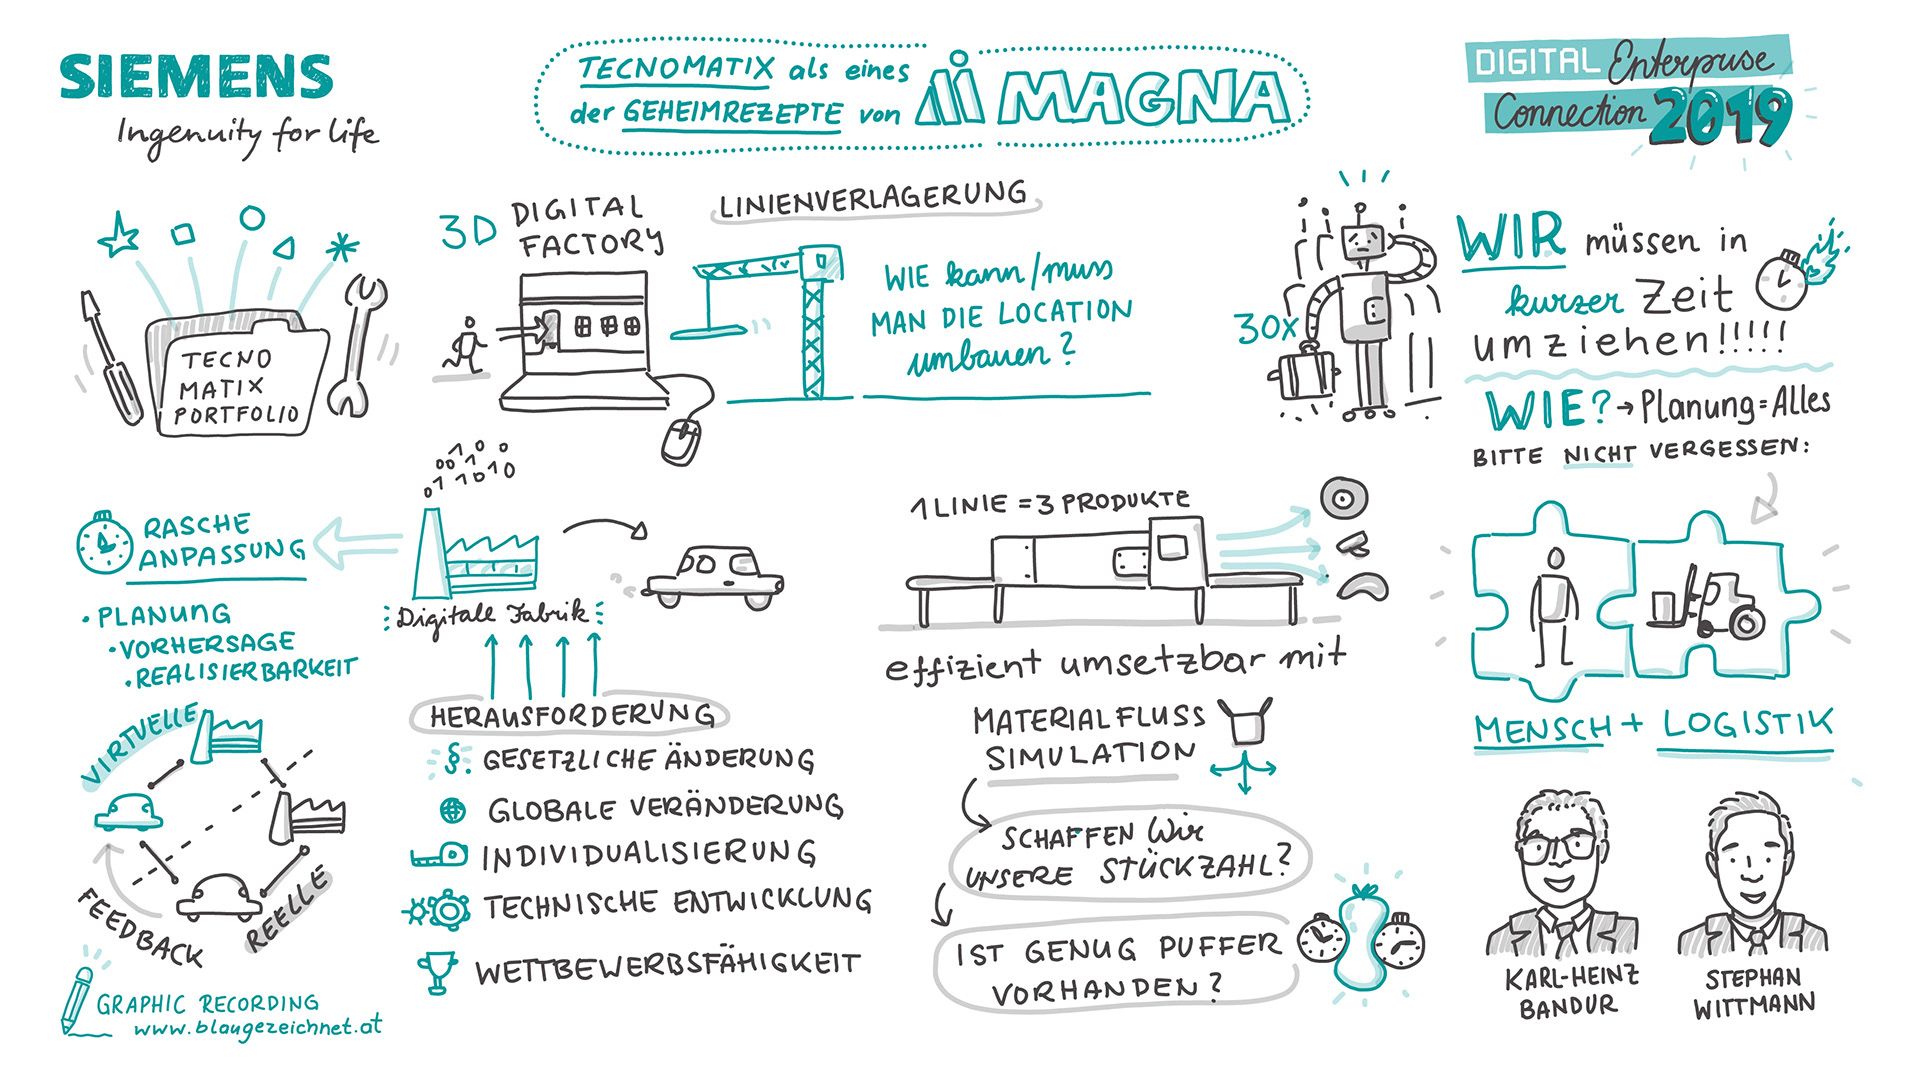 SIEMENS
Ingenuity for life
TECNOMATIX als eines
der GEHEIMREZEPTE von MAGNA
DIGITAL Enterprise
Connection 2019
TECNO
MATIX
PORTFOLIO
3D DIGITAL
FACTORY
LINIENVERLAGERUNG
WIE kann/muss
MAN DIE LOCATION
umbauen?
30x
WIR müssen in
kurzer Zeit
umziehen!!!!!
WIE? → Planung = Alles
BITTE NICHT VERGESSEN:
MENSCH + LOGISTIK
RASCHE
ANPASSUNG
• PLANUNG
• VORHERSAGE
• REALISIERBARKEIT
Digitale Fabrik
HERAUSFORDERUNG
§ GESETZLICHE ÄNDERUNG
GLOBALE VERÄNDERUNG
INDIVIDUALISIERUNG
TECHNISCHE ENTWICKLUNG
WETTBEWERBSFÄHIGKEIT
VIRTUELLE
REELLE
FEEDBACK
1 LINIE = 3 PRODUKTE
effizient umsetzbar mit
MATERIALFLUSS
SIMULATION
SCHAFFEN Wir
UNSERE STÜCKZAHL?
IST GENUG PUFFER
VORHANDEN?
KARL-HEINZ
BANDUR
STEPHAN
WITTMANN
GRAPHIC RECORDING
www.blaugezeichnet.at